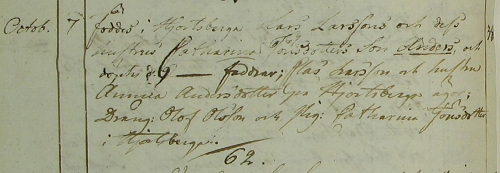 Octob. 7 föddes i Hjortsberga Lars Larssons och dess
hustrus Catharina Jonsdotters Son Anders, och
döptes d. 9 — faddrar; Olas Larsson och hustru
Annica Andersdotter på Hjortsberga ägor;
Dräng: Olof Olsson och Pig: Catharina Jönsdotter
i Hjortsberga.
62.